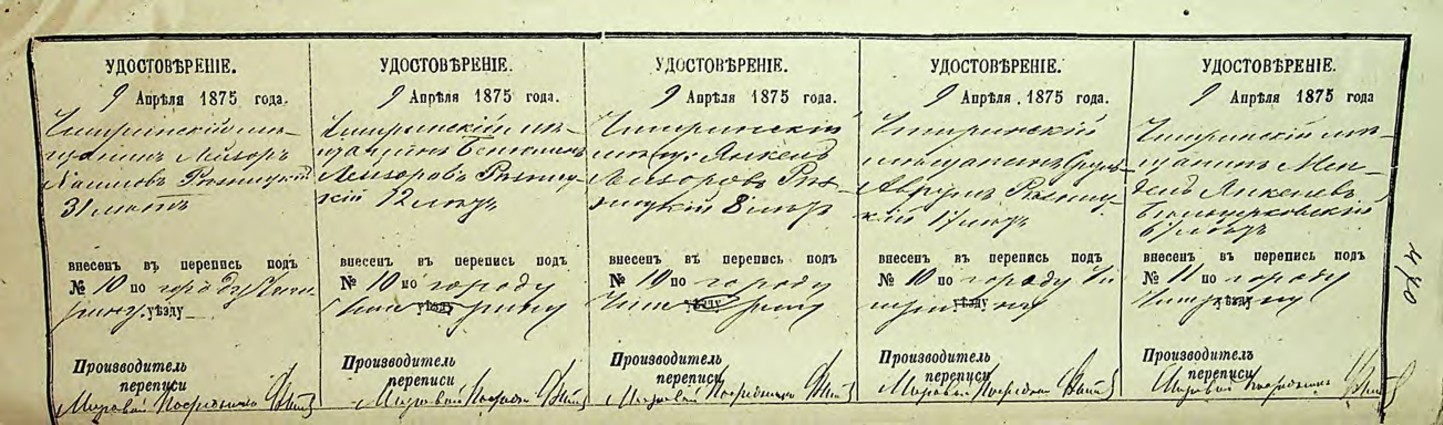 УДОСТОВѢРЕНІЕ.
9 Апрѣля 1875 года.
Чигиринскій мѣ-
щанинъ Лейзоръ
Хаимовъ Рѣзницкій
31 лѣтъ
внесенъ въ перепись подъ
№ 10 по городу Чиги-
рину. уѣзду
Производитель
переписи
Мировой Посредникъ
УДОСТОВѢРЕНІЕ.
9 Апрѣля 1875 года.
Чигиринскій мѣ-
щанинъ
Лейзоровъ Рѣзниц-
кій 12 лѣтъ
внесенъ въ перепись подъ
№ 10 по городу
Чиги уѣзду рину
Производитель
переписи
Мировой Посредник
УДОСТОВѢРЕНІЕ.
9 Апрѣля 1875 года.
Чигиринскій
мѣщ. Янкель
Лейзоровъ Рѣз-
ницкій 8 лѣтъ
внесенъ въ перепись подъ
№ 10 по городу
Чиги уѣзду рину
Производитель
переписи
Мировой Посредникъ
УДОСТОВѢРЕНІЕ.
9 Апрѣля 1875 года.
Чигиринскій
мѣщанинъ Сруль
Аврумъ Рѣзниц-
кій 17 лѣтъ
внесенъ въ перепись подъ
№ 10 по городу Чи
гирину уѣзду
Производитель
переписи
Мировой Посредник
УДОСТОВѢРЕНІЕ.
9 Апрѣля 1875 года
Чигиринскій мѣ-
щанинъ Мен-
дель Янкелевъ
Бѣлоцерковскій
67 лѣтъ
внесенъ въ перепись подъ
№ 11 по городу
Чигирину
Производитель
переписи
Мировой Посредникъ